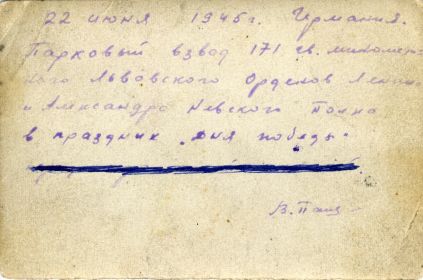 22 июня 1945г. Германия.
Парковый взвод 171 гв. миномет-
ного Львовского Орденов Ленина
и Александра Невского Полка
в праздник „Дня победы"
В.